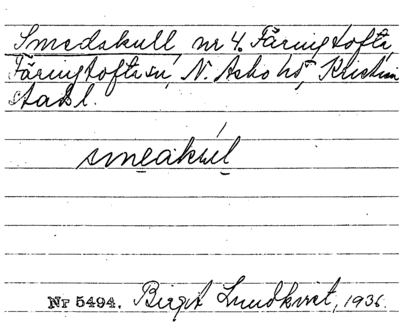 Smedskull, nr 4. Färingtofta,
Färingtofta sn, N. Asbo hd, Kristian
stads l.
smeakúl
Nr 5494. Birgit Lundkvist, 1936.